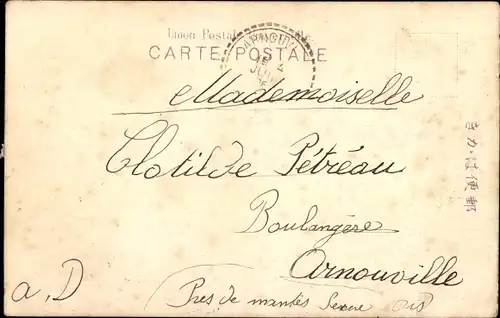 Union Postale
CARTE POSTALE
Mademoiselle
Clotilde Pétréau
Boulangère
Arnouville
Près de mantes Seine Ois
a, D
きかは便郵